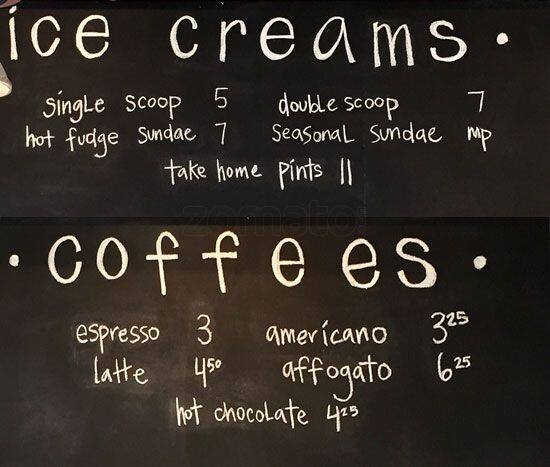 ice creams.
single scoop 5 double scoop 7
hot fudge sundae 7 seasonal sundae mp
take home pints 11
zomato
· coffees ·
espresso 3 americano 3 25
latte 4 50 affogato 6 25
hot chocolate 4 25